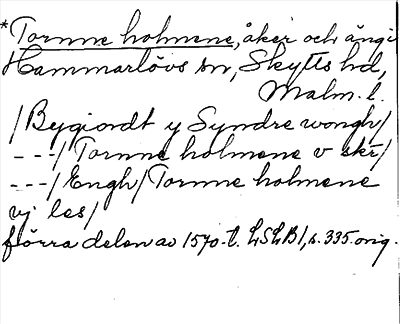 *Tornne holmene, åker och äng i
Hammarlövs sn, Skytts hd,
Malm. l.
/Bygiordt y Syndre wongh/
---/Tornne holmene v skr/
---/Engh/Tornne holmene
vj les/
förra delen av 1570-t. LSLB1, s. 335. orig.